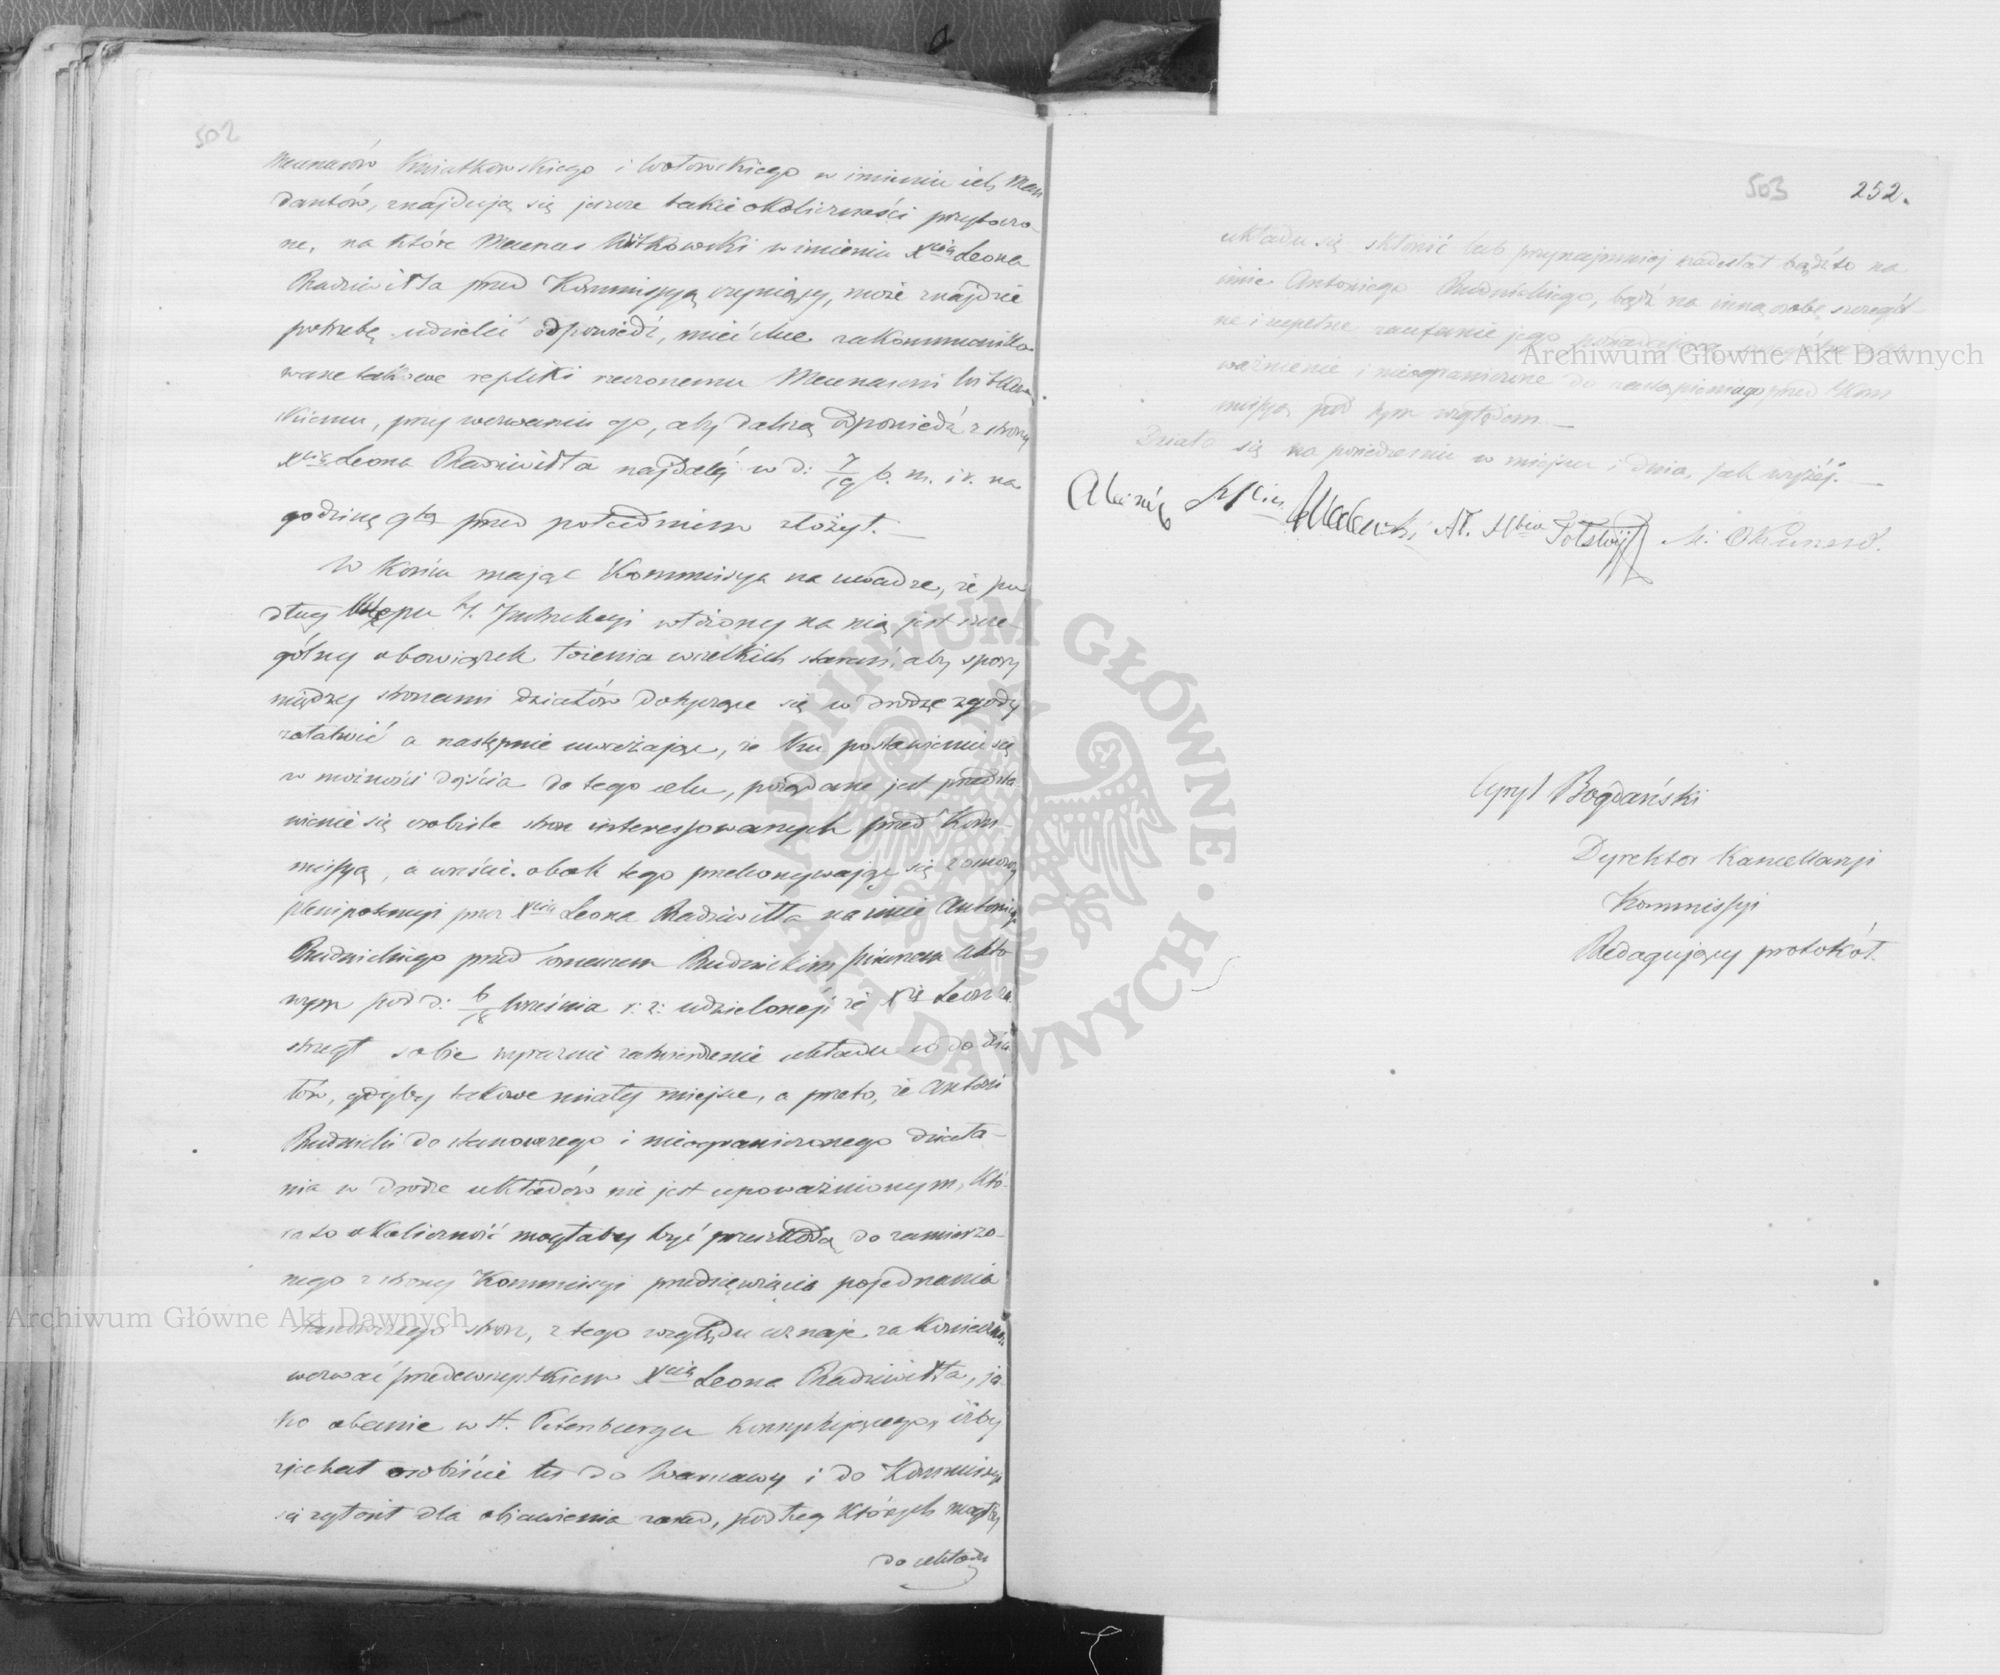 502
Mecenasów Kwiatkowskiego i Wołowskiego w imieniu ich Man
dantów, znajdują się jeszcze takie okoliczności przytoczo-
ne, na które Mecenas Witkowski w imieniu Xcia Leona
Radziwiłła przed Kommissyą czyniący, może znajdzie
potrzebę udzielić odpowiedź, mieć chce zakommuniko
wane takowe repliki rzeczonemu Mecenasowi Witkow
skiemu, przy wezwaniu go, aby dalszą odpowiedź z strony
Xcia Leona Radziwiłła najdaléj w d: 7/19 b. m. i r. na
godzinę 9tą przed południem złożył. —
W końcu mając Kommissya na uwadze, że po
dług Wstępu Instrukcyi włożony na nią jest szcze-
gólny obowiązek łożenia wszelkich starań, aby spory
między stronami działów dotyczące się w drodze zgody
załatwić a następnie uważając, że ku postawieniu się
w możności dojścia do tego celu, pożądane jest przedsta
wienie się osobiste stron interessowanych przed Kom-
missyą, a wreście obok tego przekonywając się z osnowy
plenipotencyi przez Xcia Leona Radziwiłła na imie Antoniego
Rudnickiego przed Rudnickim pisarzem akto
wym pod d: 6/18 Września r: z: udzielonéj że Xże Leon za
strzegł sobie wyraźnie zatwierdzenie układu co do dzia
łów, gdyby takowe miały miejsce, a przeto, że Antoni
Rudnicki do stanowczego i nieograniczonego działa-
nia w drodze układów nie jest upoważnionym, któ-
ra to okoliczność mogłaby być przeszkodą do zamierzo-
nego z strony Kommissyi przedsięwzięcia pojednania
stanowczego stron, z tego względu uznaje za konieczne
wezwać przedewszystkiem Xcia Leona Radziwiłła, ja-
ko obecnie w St. Petersburgu konsystującego, iżby
zjechał osobiście tu do Warszawy i do Kommissyi
się zgłosił dla objawienia zasad, podług których mógłby
do układu
503 252.
układu się skłonić lub przynajmniej nadesłał bądźto na
imie Antoniego Rudnickiego, bądź na inną osobę szczegól-
ne i zupełne zaufanie jego
ważnienie i nieograniczone do zastąpienia go przed Kom
missyą pod tym względem. —
Działo się na posiedzeniu w miejscu i dniu, jak wyżéj. —
M: Okuniew.
Cyryl Bogdański
Dyrektor Kancellaryi
Kommissyi
Redagujący protokół.
Archiwum Główne Akt Dawnych
Archiwum Główne Akt Dawnych
ARCHIWUM GŁÓWNE AKT DAWNYCH